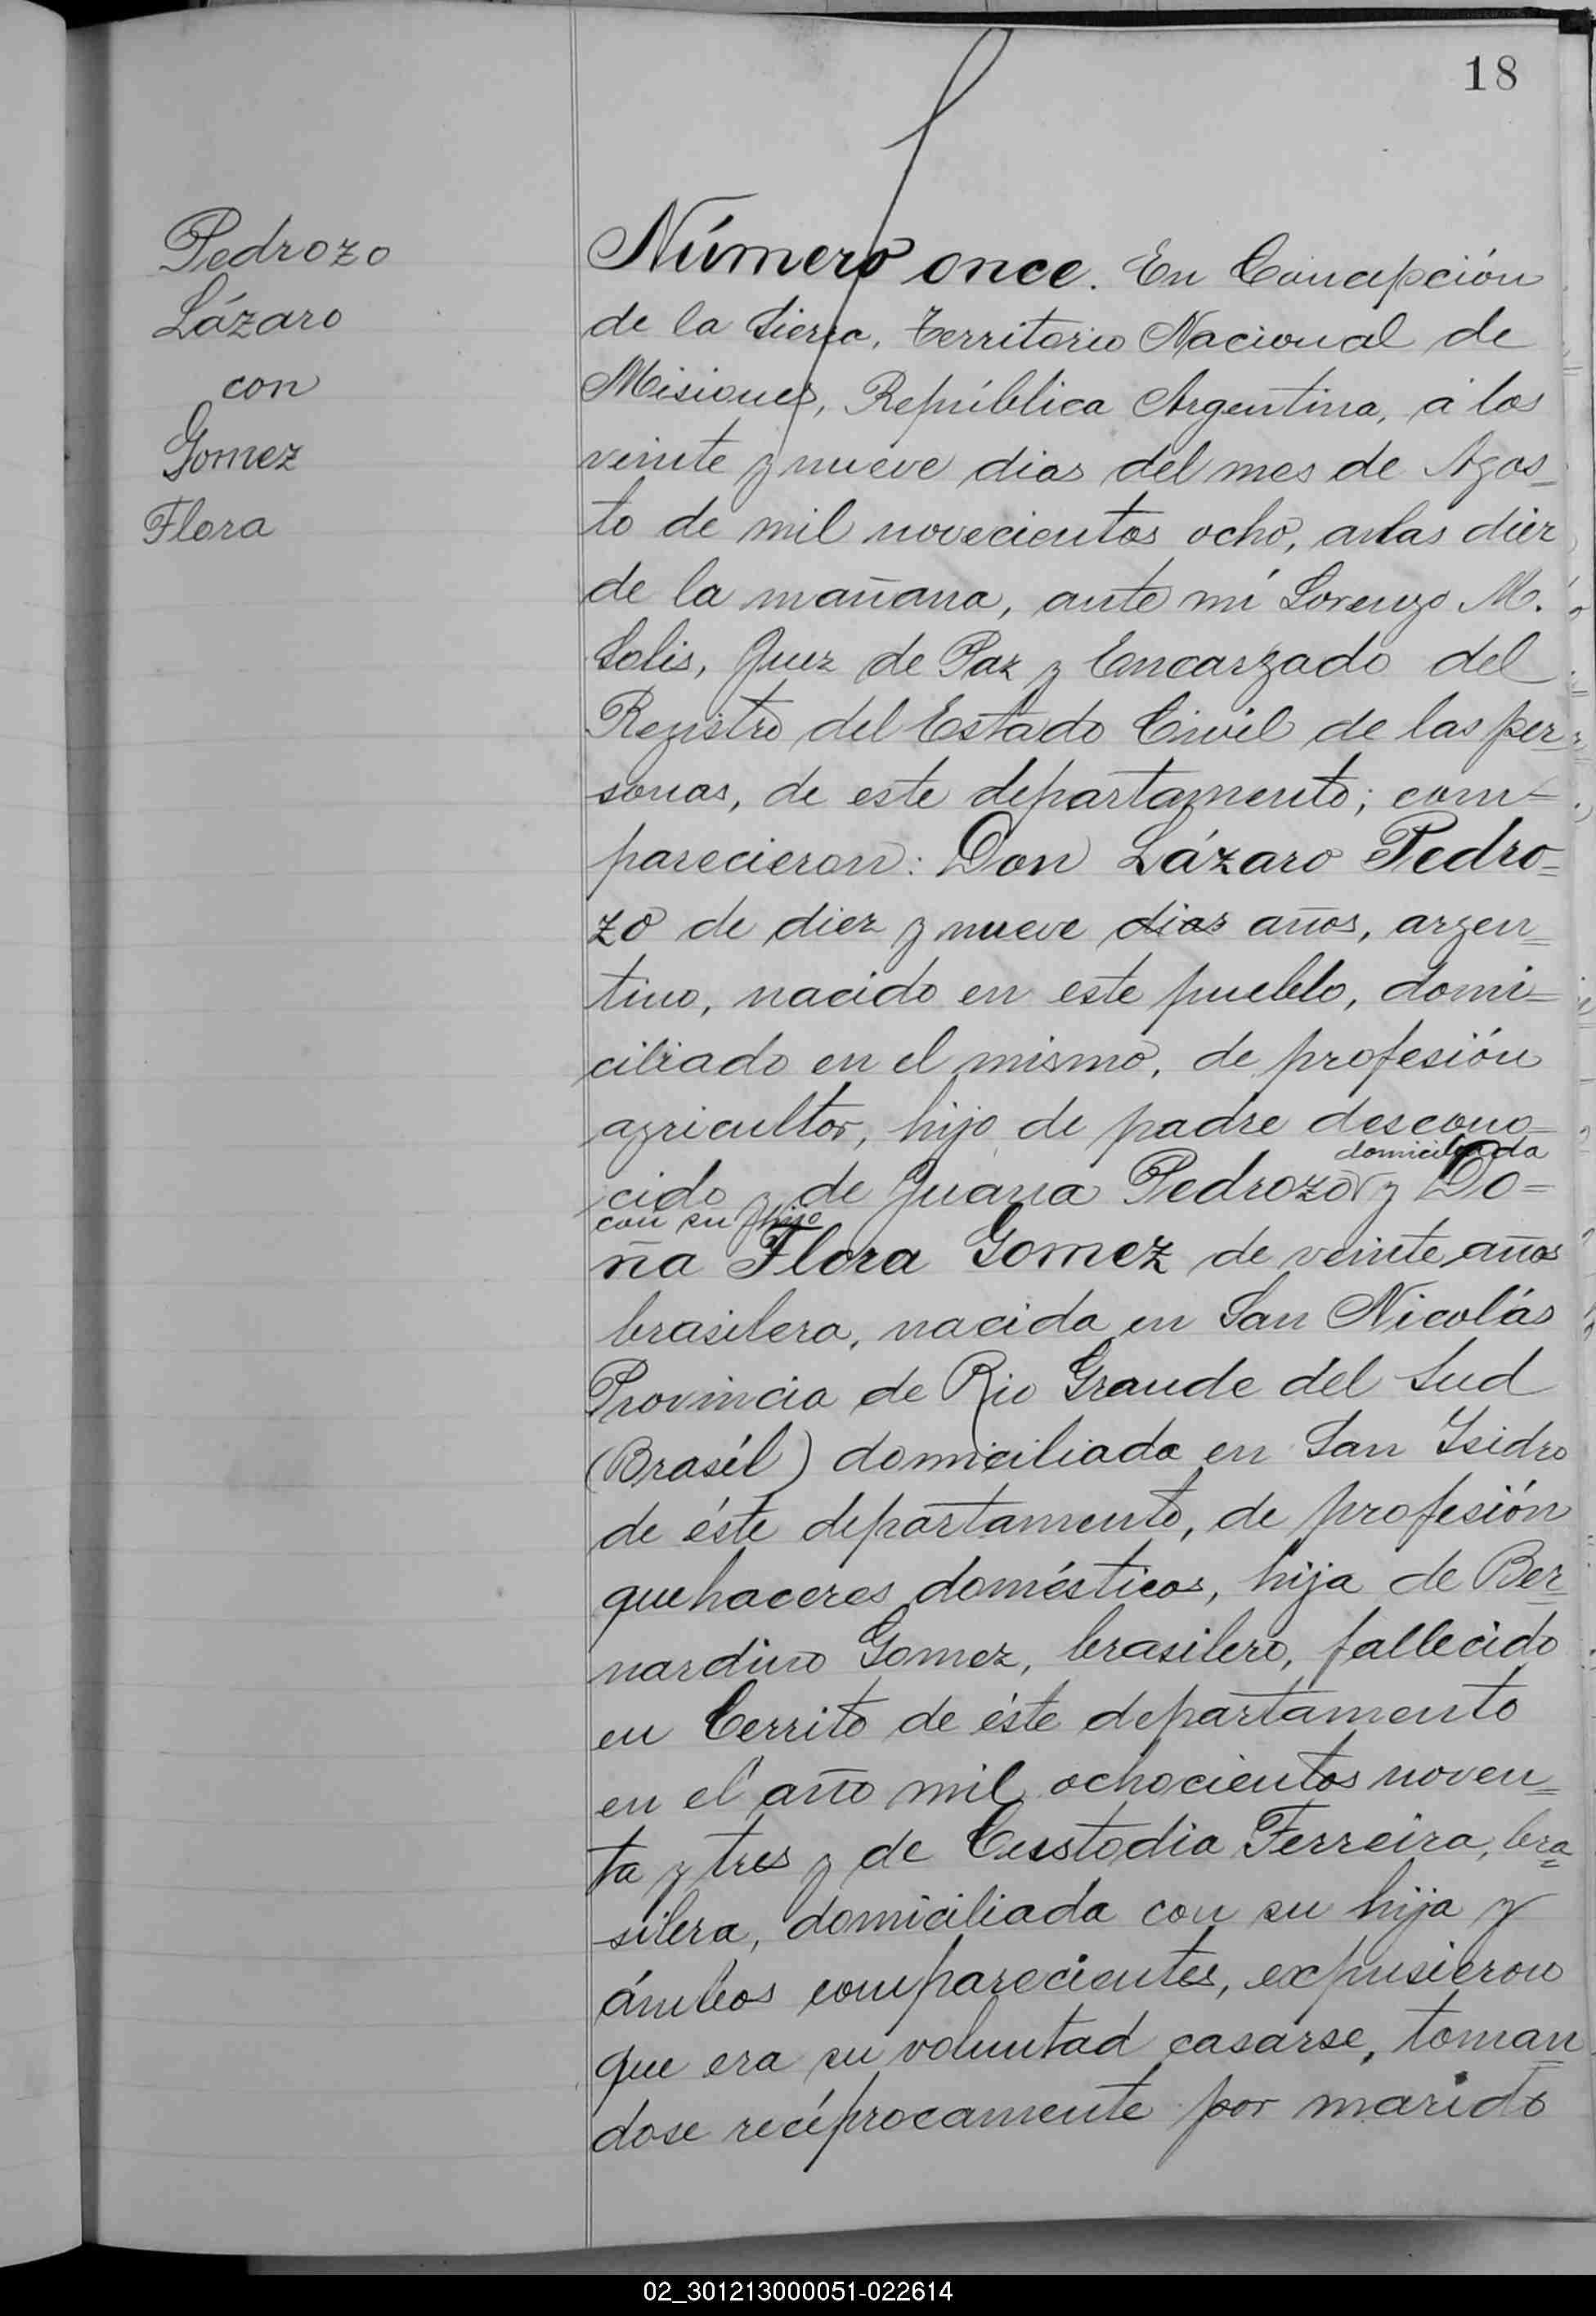 18
Pedrozo
Lázaro
con
Gomez
Flora
Número once. En Concepción
de la Sierra, Territorio Nacional de
Misiones, República Argentina, á los
veinte y nueve dias del mes de Agos=
to de mil novecientos ocho, a las diez
de la mañana, ante mí Lorenzo M.
Solis, Juez de Paz y Encargado del
Registro del Estado Civil de las per=
sonas, de este departamento; com=
parecieron: Don Lázaro Pedro=
zo de diez y nueve dias años, argen=
tino, nacido en este pueblo, domi=
ciliado en el mismo, de profesión
agricultor, hijo de padre descono=
domiciliada
cido y de Juana Pedrozo y Do=
con su hijo
ña Flora Gomez de veinte años
brasilera, nacida en San Nicolás
Provincia de Rio Grande del Sud
(Brasíl) domiciliada en San Isidro
de éste departamento, de profesión
quehaceres domésticos, hija de Ber=
nardino Gomez, brasilero, fallecido
en Cerrito de éste departamento
en el año mil ochocientos noven=
ta y tres y de Custodia Ferreira, bra=
silera, domiciliada con su hija y
ámbos comparecientes, expusieron
que era su voluntad casarse, toman=
dose recíprocamente por marido
02_301213000051-022614